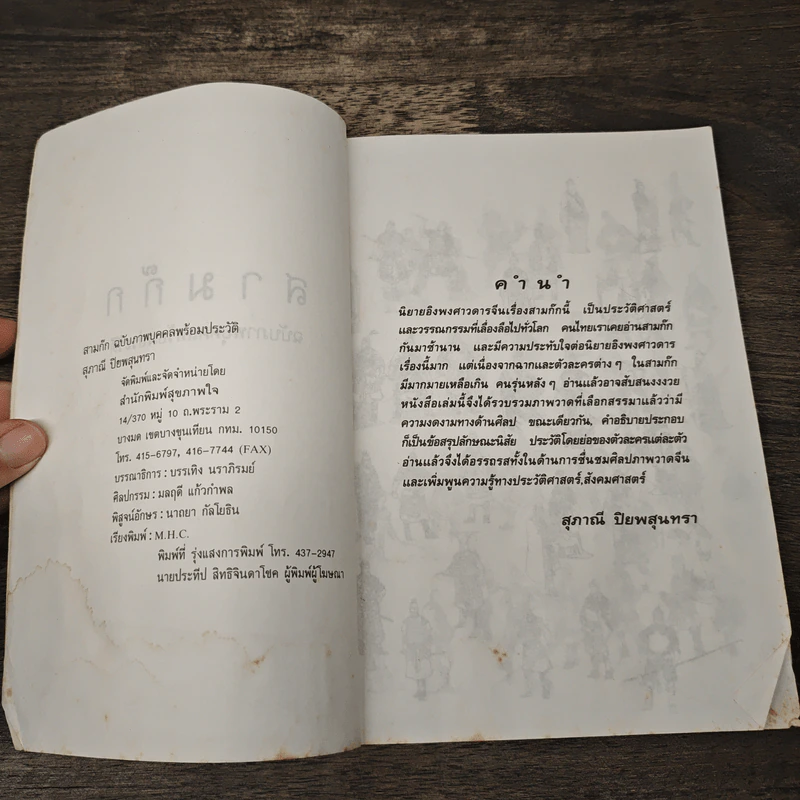 สามก๊ก ฉบับภาพบุคคลพร้อมประวัติ
สุภาณี ปิยพสุนทรา
จัดพิมพ์และจัดจำหน่ายโดย
สำนักพิมพ์สุขภาพใจ
14/370 หมู่ 10 ถ.พระราม 2
บางมด เขตบางขุนเทียน กทม. 10150
โทร. 415-6797, 416-7744 (FAX)
บรรณาธิการ : บรรเทิง นราภิรมย์
ศิลปกรรม : มลฤดี แก้วกำพล
พิสูจน์อักษร : นาถยา กัลโยธิน
เรียงพิมพ์ : M.H.C.
พิมพ์ที่ รุ่งแสงการพิมพ์ โทร. 437-2947
นายประทีป สิทธิจินดาโชค ผู้พิมพ์ผู้โฆษณา
คำนำ
นิยายอิงพงศาวดารจีนเรื่องสามก๊กนี้ เป็นประวัติศาสตร์
และวรรณกรรมที่เลื่องลือไปทั่วโลก คนไทยเราเคยอ่านสามก๊ก
กันมาช้านาน และมีความประทับใจต่อนิยายอิงพงศาวดาร
เรื่องนี้มาก แต่เนื่องจากฉากและตัวละครต่าง ๆ ในสามก๊ก
มีมากมายเหลือเกิน คนรุ่นหลัง ๆ อ่านแล้วอาจสับสนงงงวย
หนังสือเล่มนี้จึงได้รวบรวมภาพวาดที่เลือกสรรมาแล้วว่ามี
ความงดงามทางด้านศิลป ขณะเดียวกัน, คำอธิบายประกอบ
ก็เป็นข้อสรุปลักษณะนิสัย ประวัติโดยย่อของตัวละครแต่ละตัว
อ่านแล้วจึงได้อรรถรสทั้งในด้านการชื่นชมศิลปภาพวาดจีน
และเพิ่มพูนความรู้ทางประวัติศาสตร์,สังคมศาสตร์
สุภาณี ปิยพสุนทรา